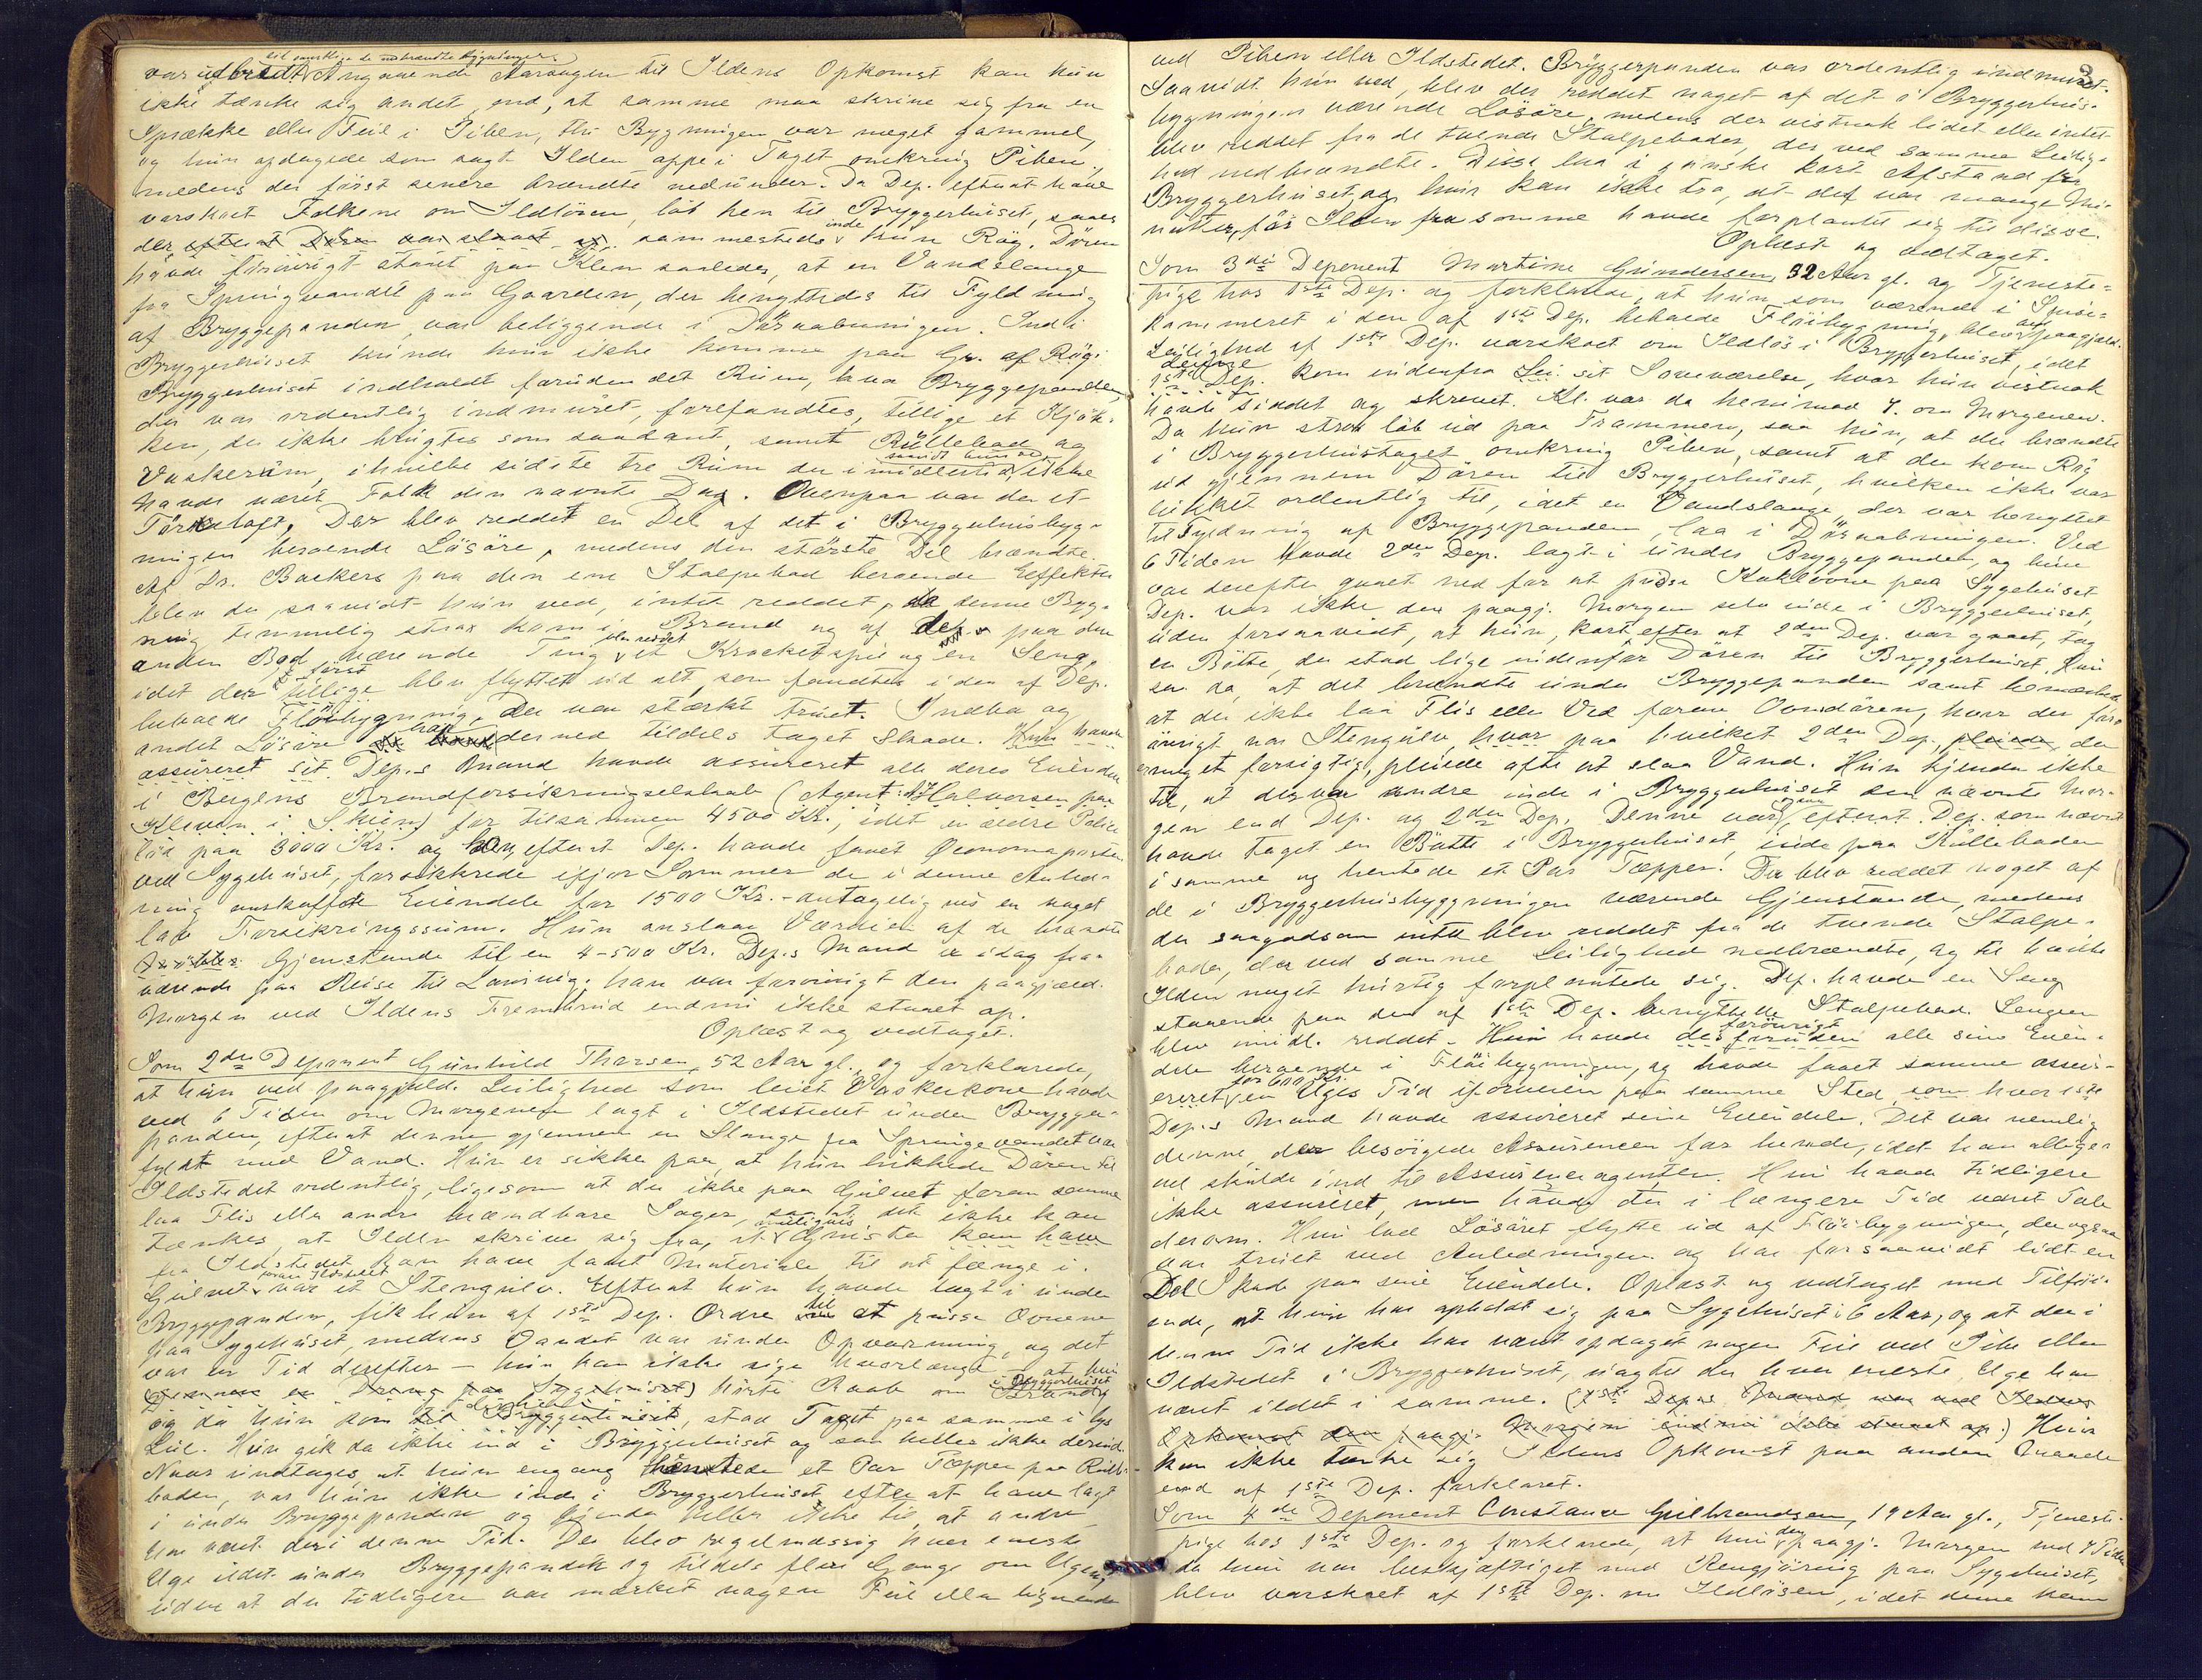 til samtlige de nedbrændte Bygninger.
var udbredt. Angaaende Aarsagen til Ildens Opkomst kan hun
ikke tænke sig andet, end, at samme maa skrive sig fra en
Sprække eller Feil i Piben, thi Bygningen var meget gammel,
og hun opdagede som sagt Ilden oppe i Taget omkring Piben,
medens der først senere brændte nedunder. Da Dep. efterat have
varskoet Folkene om Ildløsen, løb hen til Bryggerhuset, saaes
der efterat Døren var slaaet op sammesteds inde kun Røg. Døren
havde forøvrigt staaet paa Klem saaledes, at en Vandslange
fra Springvandet paa Gaarden, der benyttedes til Fyldning
af Bryggepanden, var beliggende i Døraabningen. Ind i
Bryggerhuset kunde hun ikke komme paa Gr. af Røg.
Bryggerhuset indholdt foruden det Rum, hvor Bryggepanden,
der var ordentlig indmuret, forefandtes, tillige et Kjøk-
ken, der ikke brugtes som saadant, samt Rullebod og
Vaskerum, i hvilke sidste tre Rum der imidlertid, saavidt hun ved, ikke
havde været Folk den nævnte Dag. Ovenpaa var der et
Tørkeloft. Der blev reddet en Del af det i Bryggerhusbyg-
ningen beroende Løsøre, medens den største Del brændte.
Af Dr. Backers paa den ene Stolpebod beroende Effekter
blev der, saavidt hun ved, intet reddet, da denne Byg-
ning temmelig strax kom i Brand og af Dep.s paa den
anden Bod værende Ting blev reddet et Krocketspil og en Seng,
idet der først tillige blev flyttet ud alt, som fandtes i den af Dep.
beboede Fløibygning. Der var stærkt truet. Indbo og
andet Løsøre har derved tildels taget Skade. Hun havde
assureret sit Dep.s Mand havde assureret alle deres Eiendele
i Bergens Brandforsikringsselskab (Agent: Halvorsen paa
Kleven i Skien) for tilsammen 4500 Kr., idet en ældre Police
lød paa 3000 Kr. og han, efterat Dep. havde faaet Økonomaposten
ved Sygehuset, forsikkrede ifjor Sommer de i denne Anled-
ning anskaffede Eiendele for 1500 Kr. - antagelig vis en noget
lav Forsikringssum. Hun anslaar Værdien af de brændte
Gjenstande til en 4-500 Kr. Dep.s Mand er idag fra-
værende paa Reise til Laurvig; han var forøvrigt den paagjæld.
Morgen ved Ildens Frembrud endnu ikke staaet op.
Oplæst og vedtaget.
Som 2den Deponent Gunhild Thorsen, 52 Aar gl., og forklarede,
at hun ved paagjæld. Leilighed som leiet Vaskerkone havde
ved 6 Tiden om Morgenen lagt i Ildstedet under Brygge-
panden, efterat denne gjennem en Slange fra Springevandet var
fyldt med Vand. Hun er sikker paa, at hun lukkede Døren til
Ildstedet ordentlig, ligesom at der ikke paa Gulvet foran samme
laa Flis eller andre brændbare Sager, saa at det ikke kan
tænkes at Ilden skriver sig fra, at Gnister kan have
fra Ildstedet kan have faaet Materiale til at fænge i.
Gulvet foran Ildstedet var et Stengulv. Efterat hun havde lagt i under
Bryggepanden, fik hun af 1ste Dep. Ordre til at pudse Ovnene
paa Sygehuset, medens Vandet var under Opvarmning, og det
var en Tid derefter - hun kan ikke sige hvorlænge - at hun
hørte Raab om Brand i Bryggerhuset
og da hun kom til Bryggerhuset, stod Taget paa samme i lys
Lue. Hun gik da ikke ind i Bryggerhuset og saa heller ikke derind.
Naar undtages, at hun engang hentede et Par Tæpper paa Rulle-
boden, var hun ikke inde i Bryggerhuset efter at have lagt
i under Bryggepanden og kjender heller ikke til, at andre
har været der i denne Tid. Der blev regelmæssig hver eneste
Uge ildet under Bryggepanden og tildels flere Gange om Ugen,
uden at der tidligere var mærket nogen Feil eller lignende
3
ved Piben eller Ildstedet. Bryggerpanden var ordentlig indmuret.
Saavidt hun ved, blev der reddet noget af det i Bryggerhus-
bygningen værende Løsøre, medens der vistnok lidet eller intet
blev reddet fra de tvende Stolpeboder, der ved samme Leilig-
hed nedbrændte. Disse laa i ganske kort Afstand fra
Bryggerhuset, og hun kan ikke tro, at det var mange Mi-
nutter, før Ilden fra samme havde forplantet sig til disse.
Oplæst og vedtaget.
Som 3die Deponent Martine Gundersen, 32 Aar gl. og Tjeneste-
pige hos 1ste Dep. og forklarede, at hun, som værende i Spise-
kammeret i den af 1ste Dep. beboede Fløibygning, blev ved paagjæld.
Leilighed af 1ste Dep. varskoet om Ildløs i Bryggerhuset, idet
denne
1ste Dep. kom indenfra sit Soveværelse, hvor hun vistnok
havde siddet og skrevet. Kl. var da henimod 7 om Morgenen.
Da hun strax løb ud paa Trammen, saa hun, at det brændte
i Bryggerhustaget omkring Piben, samt at der kom Røg
ud gjennem Døren til Bryggerhuset, hvilken ikke var
lukket ordentlig til, idet en Vandslange, der var benyttet
til Fyldning af Bryggepanden, laa i Døraabningen. Ved
6 Tiden havde 2den Dep. lagt i under Bryggepanden, og hun
var derefter gaaet ned for at pudse Kakkelovne paa Sygehuset
Dep. var ikke den paagj. Morgen selv inde i Bryggerhuset,
uden forsaavidt, at hun, kort efter at 2den Dep. var gaaet, tog
en Bøtte, der stod lige indenfor Døren til Bryggerhuset. Hun
saa da, at det brændte under Bryggepanden samt bemærkede
at der ikke laa Flis eller Ved foran Ovndøren, hvor der for-
øvrigt var Stengulv, hvor paa hvilket 2den Dep., der
er meget forsigtig, pleiede ofte at slaa Vand. Hun kjender ikke
til, at der var andre inde i Bryggerhuset den nævnte Mor-
gen end Dep. og 2den Dep. Denne var efterat Dep. som nævnt
havde taget en Bøtte i Bryggerhuset, inde paa Rulleboden
i samme og hentede et Par Tæpper. Der blev reddet noget af
de i Bryggerhusbygningen værende Gjenstande, medens
der saagodtsom intet blev reddet fra de tvende Stolpe-
boder, der ved samme Leilighed nedbrændte, og til hvilke
Ilden meget hurtig forplantede sig. Dep. havde en Seng
staaende paa den af 1ste Dep. benyttede Stolpebod. Sengen
blev imidl. reddet. Hun havde forøvrigt alle sine Eien-
dele beroende i Fløibygningen, og havde faaet samme assu-
reret for 600 Kr. en Uges Tid iforveien paa samme Sted, som hvor 1ste
Dep.s Mand havde assureret sine Eiendele. Det var nemlig
denne, der besørgede Assurancen for hende, idet han allige-
vel skulde ind til Assuranceagenten. Hun havde tidligere
ikke assureret, men havde der i længere Tid været Tale
derom. Hun lod Løsøret flytte ud af Fløibygningen, der ogsaa
var truet ved Anledningen og har forsaavidt lidt en
Del Skade paa sine Eiendele. Oplæst og vedtaget med Tilføi-
ende, at hun har opholdt sig paa Sygehuset i 6 Aar, og at der i
denne Tid ikke har været opdaget nogen Feil ved Pibe eller
Ildstedet i Bryggerhuset, uagtet der hver eneste Uge har
været ildet i samme. (1ste Dep.s Mand var ved Ildens
Opkomst den paagj. Morgen endnu ikke staaet op.) Hun
kan ikke tænke sig Ildens Opkomst paa anden Maade
end af 1ste Dep. forklaret.
Som 4de Deponent Constance Gulbrandsen, 19 Aar gl., Tjeneste-
pige hos 1ste Dep. og forklarede, at hun den paagj. Morgen ved 7 Tiden
da hun var beskjæftiget med Rengjøring paa Sygehuset,
blev varskoet af 1ste Dep. om Ildløsen, idet denne kom